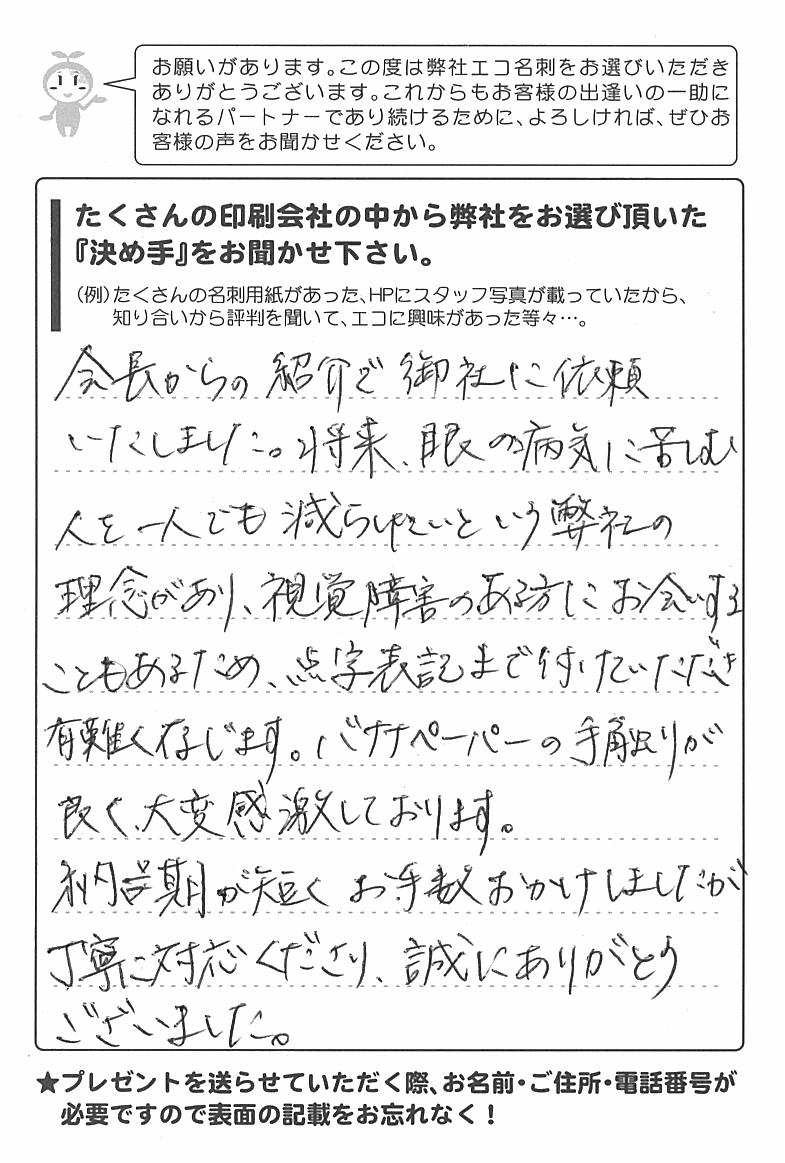 お願いがあります。この度は弊社エコ名刺をお選びいただき
ありがとうございます。これからもお客様の出逢いの一助に
なれるパートナーであり続けるために、よろしければ、ぜひお
客様の声をお聞かせください。
たくさんの印刷会社の中から弊社をお選び頂いた
『決め手』をお聞かせ下さい。
(例)たくさんの名刺用紙があった、HPにスタッフ写真が載っていたから、
知り合いから評判を聞いて、エコに興味があった等々…。
会長からの紹介で御社に依頼
いたしました。将来、眼の病気に苦しむ
人を一人でも減らしたいという弊社の
理念があり、視覚障害のある方にお会いする
こともあるため、点字表記まで付けていただき
有難く存じます。バナナペーパーの手触りが
良く、大変感激しております。
納品期が短く お手数おかけしましたが
丁寧に対応くださり、誠にありがとう
ございました。
★プレゼントを送らせていただく際、お名前・ご住所・電話番号が
必要ですので表面の記載をお忘れなく！